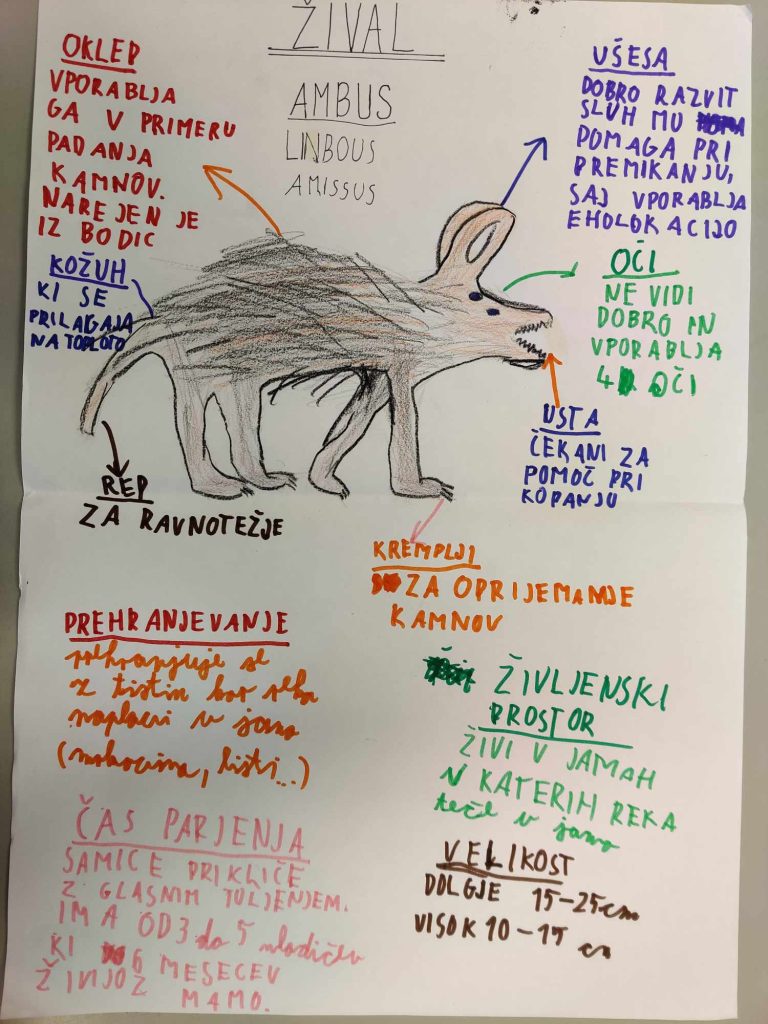 ŽIVAL
AMBUS
LINBOUS
AMISSUS
OKLEP
VPORABLJA
GA V PRIMERU
PADANJA
KAMNOV.
NAREJEN JE
IZ BODIC
KOŽUH
KI SE
PRILAGAJA
NA TOPLOTO
UŠESA
DOBRO RAZVIT
SLUH MU
POMAGA PRI
PREMIKANJU,
SAJ VPORABLJA
EHOLOKACIJO
OČI
NE VIDI
DOBRO IN
VPORABLJA
4 OČI
USTA
ČEKANI ZA
POMOČ PRI
KOPANJU
REP
ZA RAVNOTEŽJE
KREMPLJI
ZA OPRIJEMANJE
KAMNOV
PREHRANJEVANJE
prehranjuje se
z tistim kar reka
naplavi v jamo
(mrhovina, listi...)
ŽIVLJENSKI
PROSTOR
ŽIVI V JAMAH
V KATERIH REKA
teče v jamo
ČAS PARJENJA
SAMICE PRIKLIČE
Z GLASNIM TULJENJEM.
IMA OD 3 do 5 mladičev
KI 6 MESECEV
ŽIVIJO Z
MAMO.
VELIKOST
DOLGJE 15-25cm
VISOK 10-15 cm